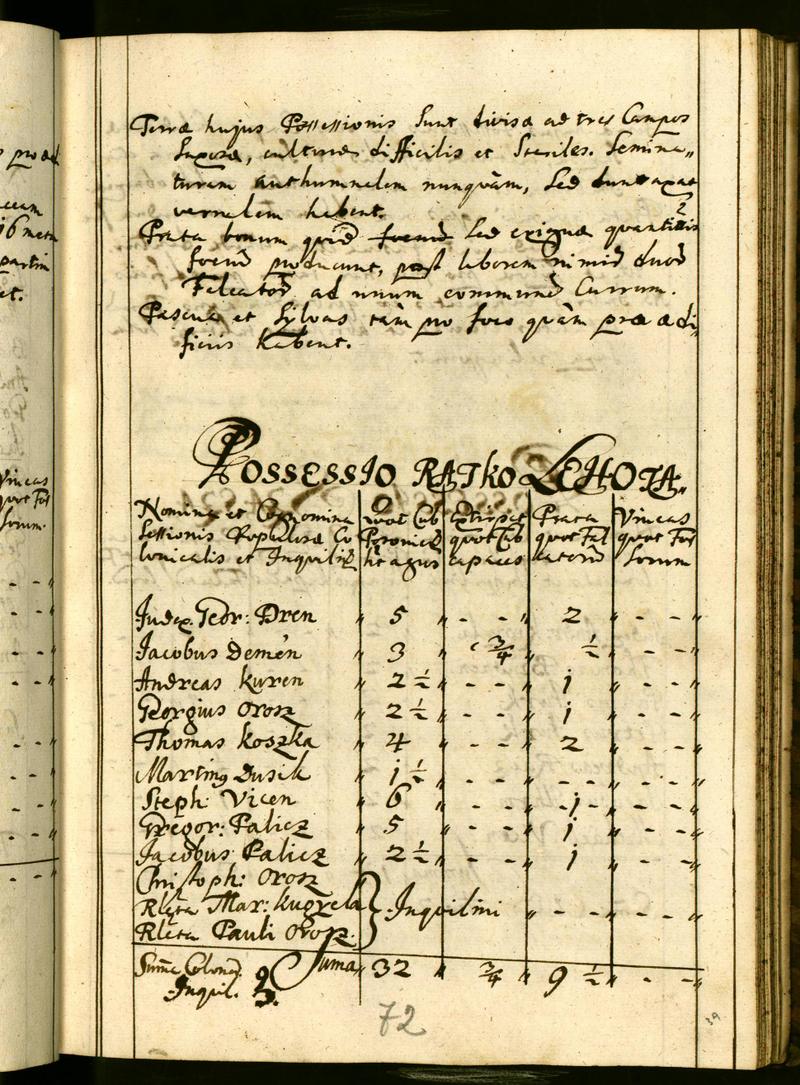 Terræ hujus Possessionis Sunt divisæ ad tres Campos
culturæ difficilis et Steriles. Semina„
turam authumnalem nunquàm, Sed duntaxat
vernalem habent.
Prata bonum quid̄ foenū Sed exiguæ quantitatis
foenū producunt, post laborem nimirū duorū
Falcatorū ad unum currum.
Pascua et Sylvas tàm pro foco quàm pro ædi„
ficiis habent.
POSSESSIO RATKO LEHOTA.
Nomina et Cognomina
Sessionis Populosæ Co
lonicalis et Inquilin
quot Cub
Posonien
sit agror
Extirpat
quot Cub
capaces
Prata
quot Fal
catorū
Vineas
quot Fos
sorum
Judex Geor: Dren „ 5 „ - - „ 2 „ - - „
Jacobus Demén „ 3 „ ¾ „ ½ „ - - „
Andreas Kuren „ 2 ½ „ - - „ 1 „ - - „
Georgius Orosz „ 2 ½ „ - - „ 1 „ - - „
Thomas Koszka „ 4 „ - - „ 2 „ - - „
Martinus Dusik „ 1 ½ „ - - „ - - „ - - „
Steph: Vicen „ 6 „ - - „ 1 „ - - „
Gregor: Palicz „ 5 „ - - „ 1 „ - - „
Jacobus Palicz „ 2 ½ „ - - „ 1 „ - - „
Christoph: Orosz
Rlcta Mar: Kugyela } Inquilini „ - - „ - - „
Rlcta Pauli Orosz
Sum̄a Colonor. 9 Suma „ 32 „ ¾ „ 9 ½ „ - - „
Inquil. 3.
72
39